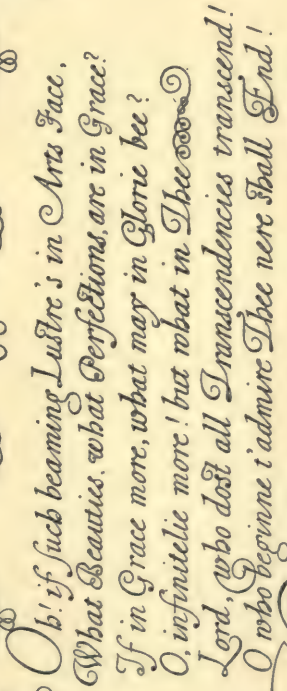 Oh! if such beaming Lustre's in Arts Face,
What Beauties, what Perfections, are in Grace?
If in Grace more, what may in Glorie bee?
O, infinitelie more! but what in Thee
Lord, who dost all Transcendencies transcend!
O who beginne t'admire Thee nere shall End!